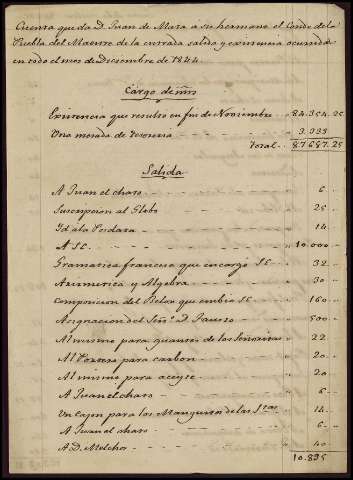 Cuenta que da D. Juan de Mata a su hermano el Conde de la
Puebla del Maestre de la entrada salida y existencia ocurrida
en todo el mes de Diciembre de 1844.
Cargo de mrs
Existencia que resultó en fin de Noviembre 84.354..25
Una mesada de Tesoreria 3.333
Total.. 87687.25
Salida
A Juan el charo 6
Suscripcion al Globo 25
Id a la Posdata 14
A S.E. 10.000
Gramatica francesa que encargó S.E. 32
Arismetica y Algebra 30
Composicion del Relox que embia S.E. 160
Asignacion del Señor D. Fausto 500
Al mismo para guantes de las Señoritas 22
Al Portero para carbon 20
Al mismo para aceyte 20
A Juan el charo 6
Un cajon para los Manguitos de las S.tas 14
A Juan el charo 6
A D. Melchor 40
10.895